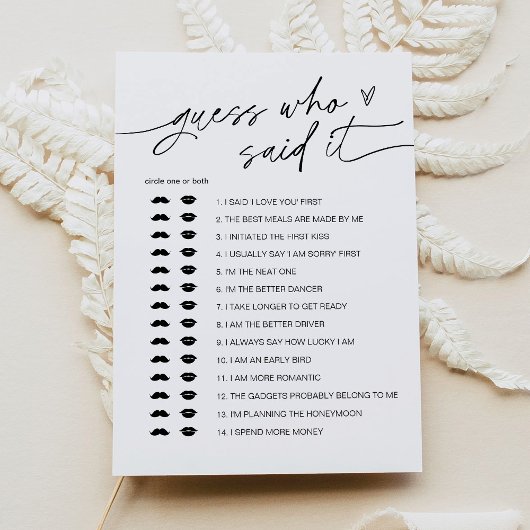 guess who
said it
circle one or both
1. I SAID 'I LOVE YOU' FIRST
2. THE BEST MEALS ARE MADE BY ME
3. I INITIATED THE FIRST KISS
4. I USUALLY SAY 'I AM SORRY' FIRST
5. I'M THE NEAT ONE
6. I'M THE BETTER DANCER
7. I TAKE LONGER TO GET READY
8. I AM THE BETTER DRIVER
9. I ALWAYS SAY HOW LUCKY I AM
10. I AM AN EARLY BIRD
11. I AM MORE ROMANTIC
12. THE GADGETS PROBABLY BELONG TO ME
13. I'M PLANNING THE HONEYMOON
14. I SPEND MORE MONEY